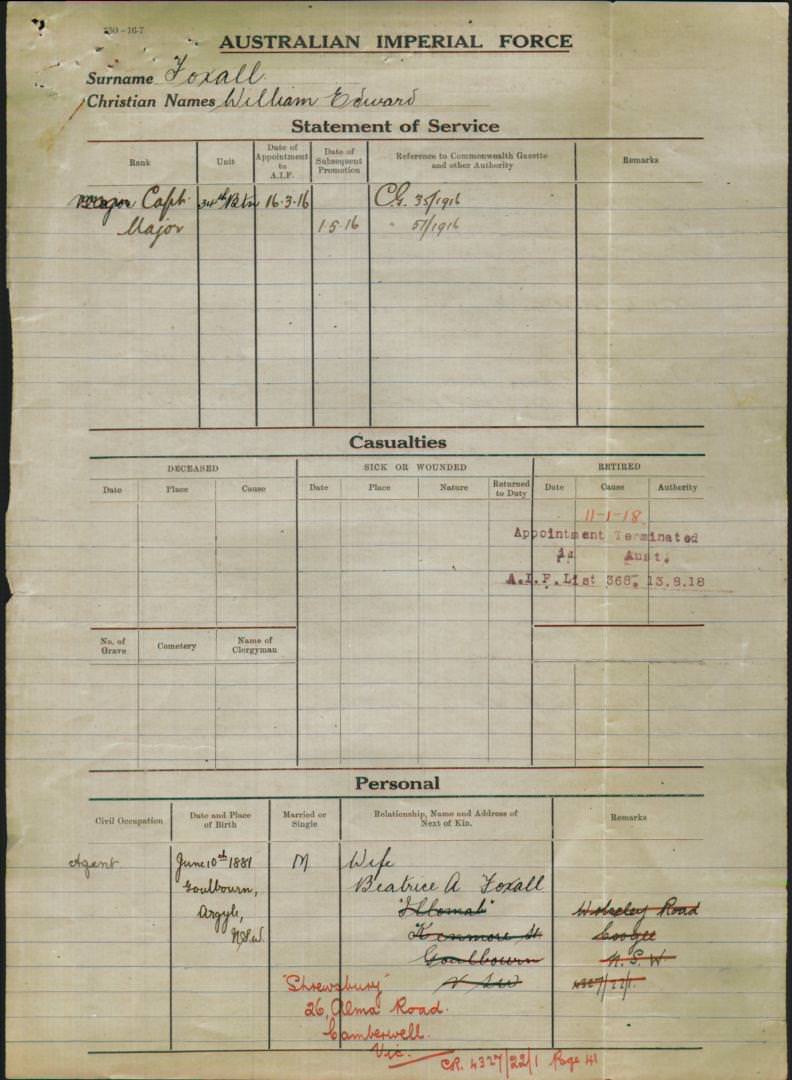 730-16-7
AUSTRALIAN IMPERIAL FORCE
Surname Foxall
Christian Names William Edward
Statement of Service
Rank
Unit
Date of Appointment to A.I.F.
Date of Subsequent Promotion
Reference to Commonwealth Gazette and other Authority
Remarks
Major Capt. 34th Btn 16.3.16 C.G. 35/1916
Major 1.5.16 " 51/1916
Casualties
DECEASED
SICK OR WOUNDED
RETIRED
Date Place Cause
Date Place Nature Returned to Duty
Date Cause Authority
11-1-18
Appointment Terminated
in Aust.
A.I.F. List 368, 13.8.18
No. of Grave
Cemetery
Name of Clergyman
Personal
Civil Occupation
Date and Place of Birth
Married or Single
Relationship, Name and Address of Next of Kin.
Remarks
Agent June 10th 1881 M Wife
Goulbourn, Beatrice A Foxall
Argyle, Wolseley Road
N.S.W. Kenmore St Coogee
Goulbourn N.S.W
"Shrewsbury" N S W 4327/22/1.
26, Alma Road.
Camberwell.
Vic.
CR. 4327/22/1 Page 41